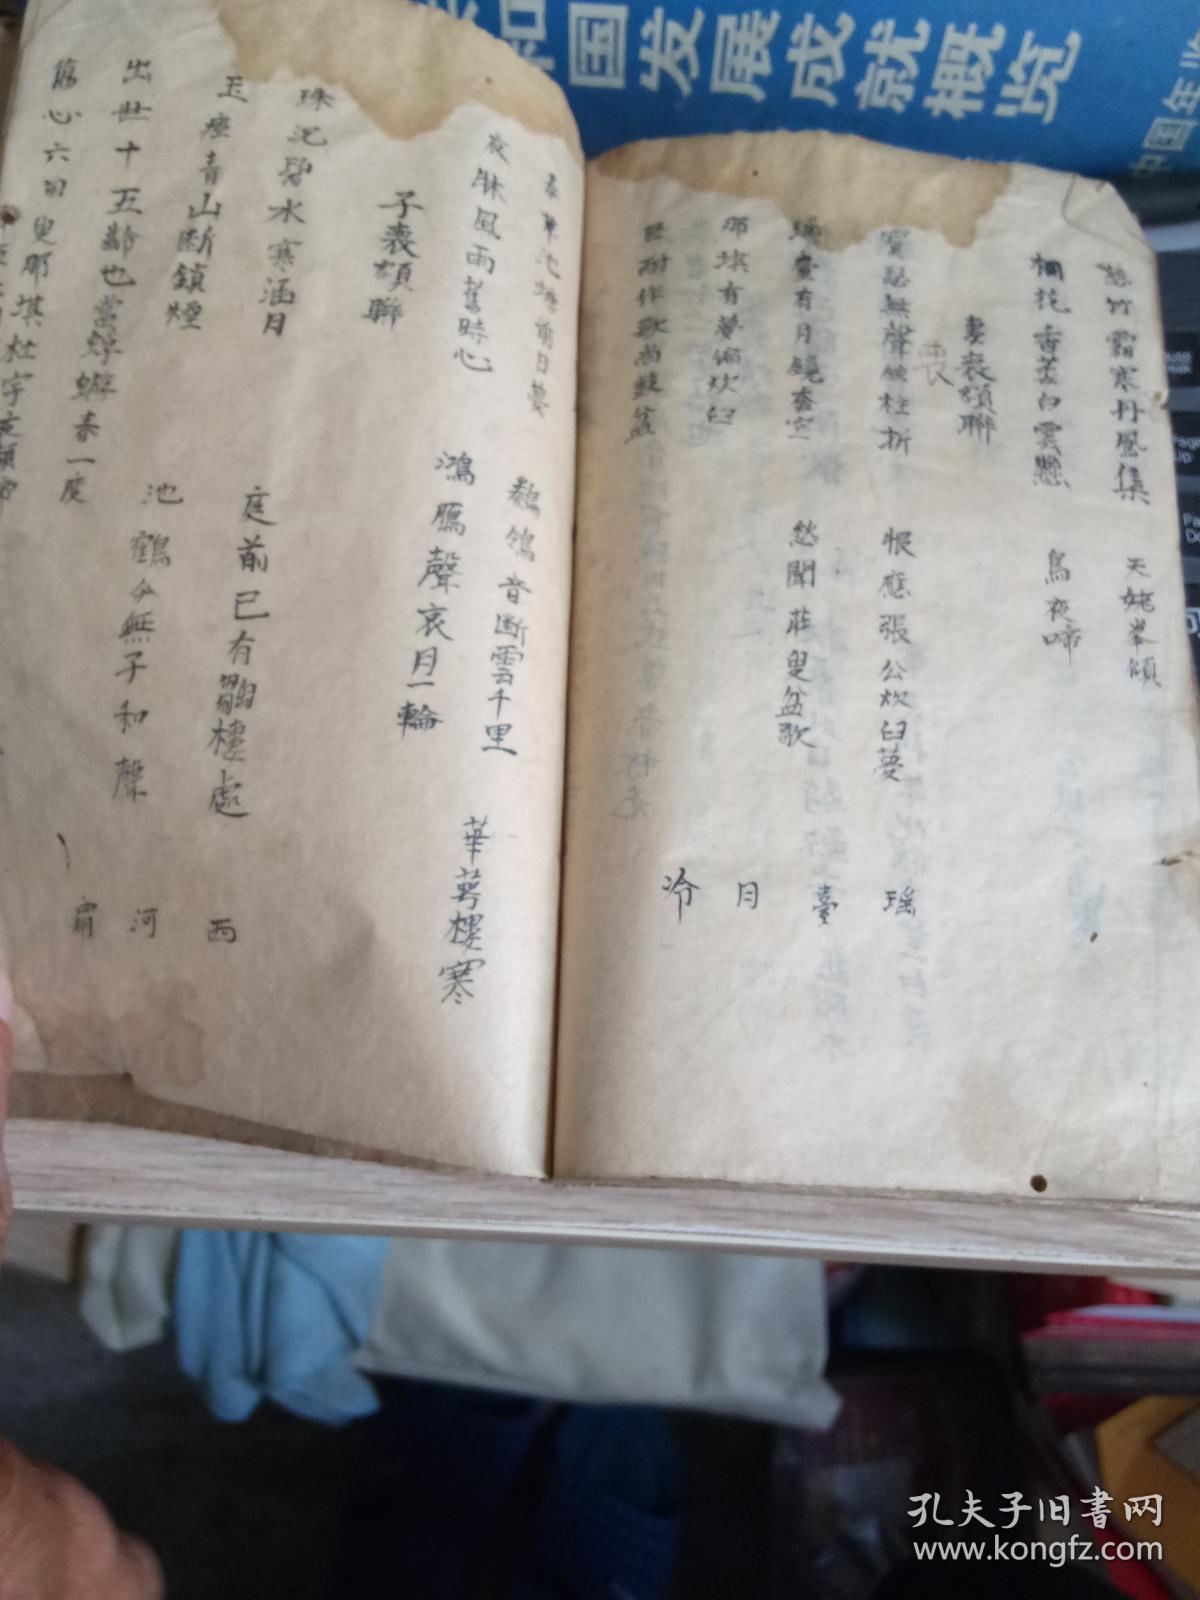 和国发展成就概览
中国年
慈竹霜寒丹鳳集
天姥峯傾
桐花香萎白雲懸
烏夜啼
妻喪額聯
喪
寶瑟無聲絃柱折
恨應張公炊臼夢
瑶
瑤臺有月鏡奩空
愁聞莊叟盆歌
臺
那堪有夢偏炊臼
月
叵耐作歌尚鼓盆
冷
春草池塘前日夢
鶺鴒音断雲千里
華萼樓寒
夜牀風雨舊時心
鴻鴈聲哀月一輪
子喪額聯
珠沉碧水寒涵月
庭前已有鷚棲處
西
玉瘞青山断鎖煙
池鶴今無子和聲
河
出世十五齡也當蜉蝣春一度
肩
傷心六旬叟那堪杜宇夜頻啼
Page
Up
孔夫子旧书网
www.kongfz.com